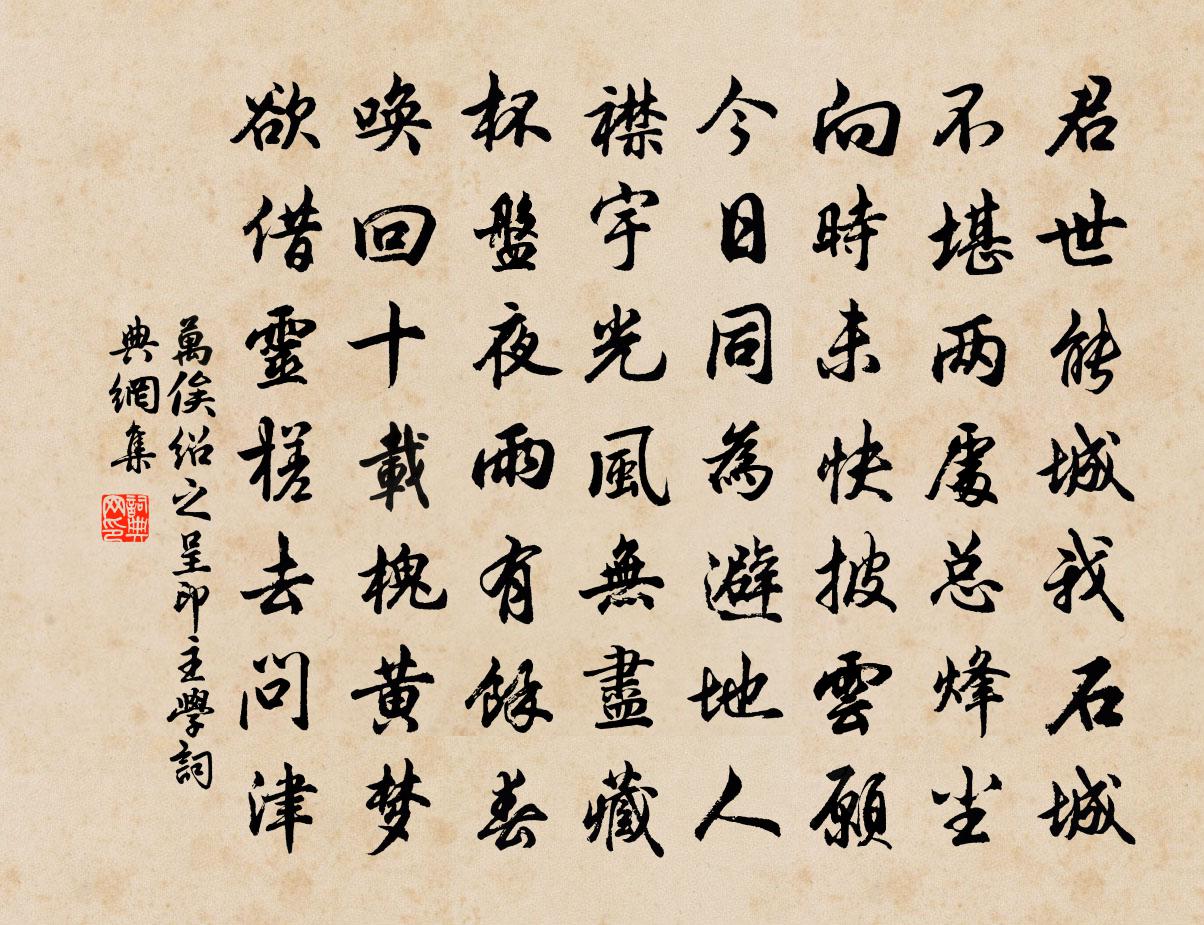 君世能城我石城
不堪两處总烽尘
向時未快披雲願
今日同為避地人
襟宇光風無盡藏
杯盤夜雨有餘春
唤回十載槐黄梦
欲借靈槎去问津
萬俟绍之呈印主學詞
典網集
詞典网印